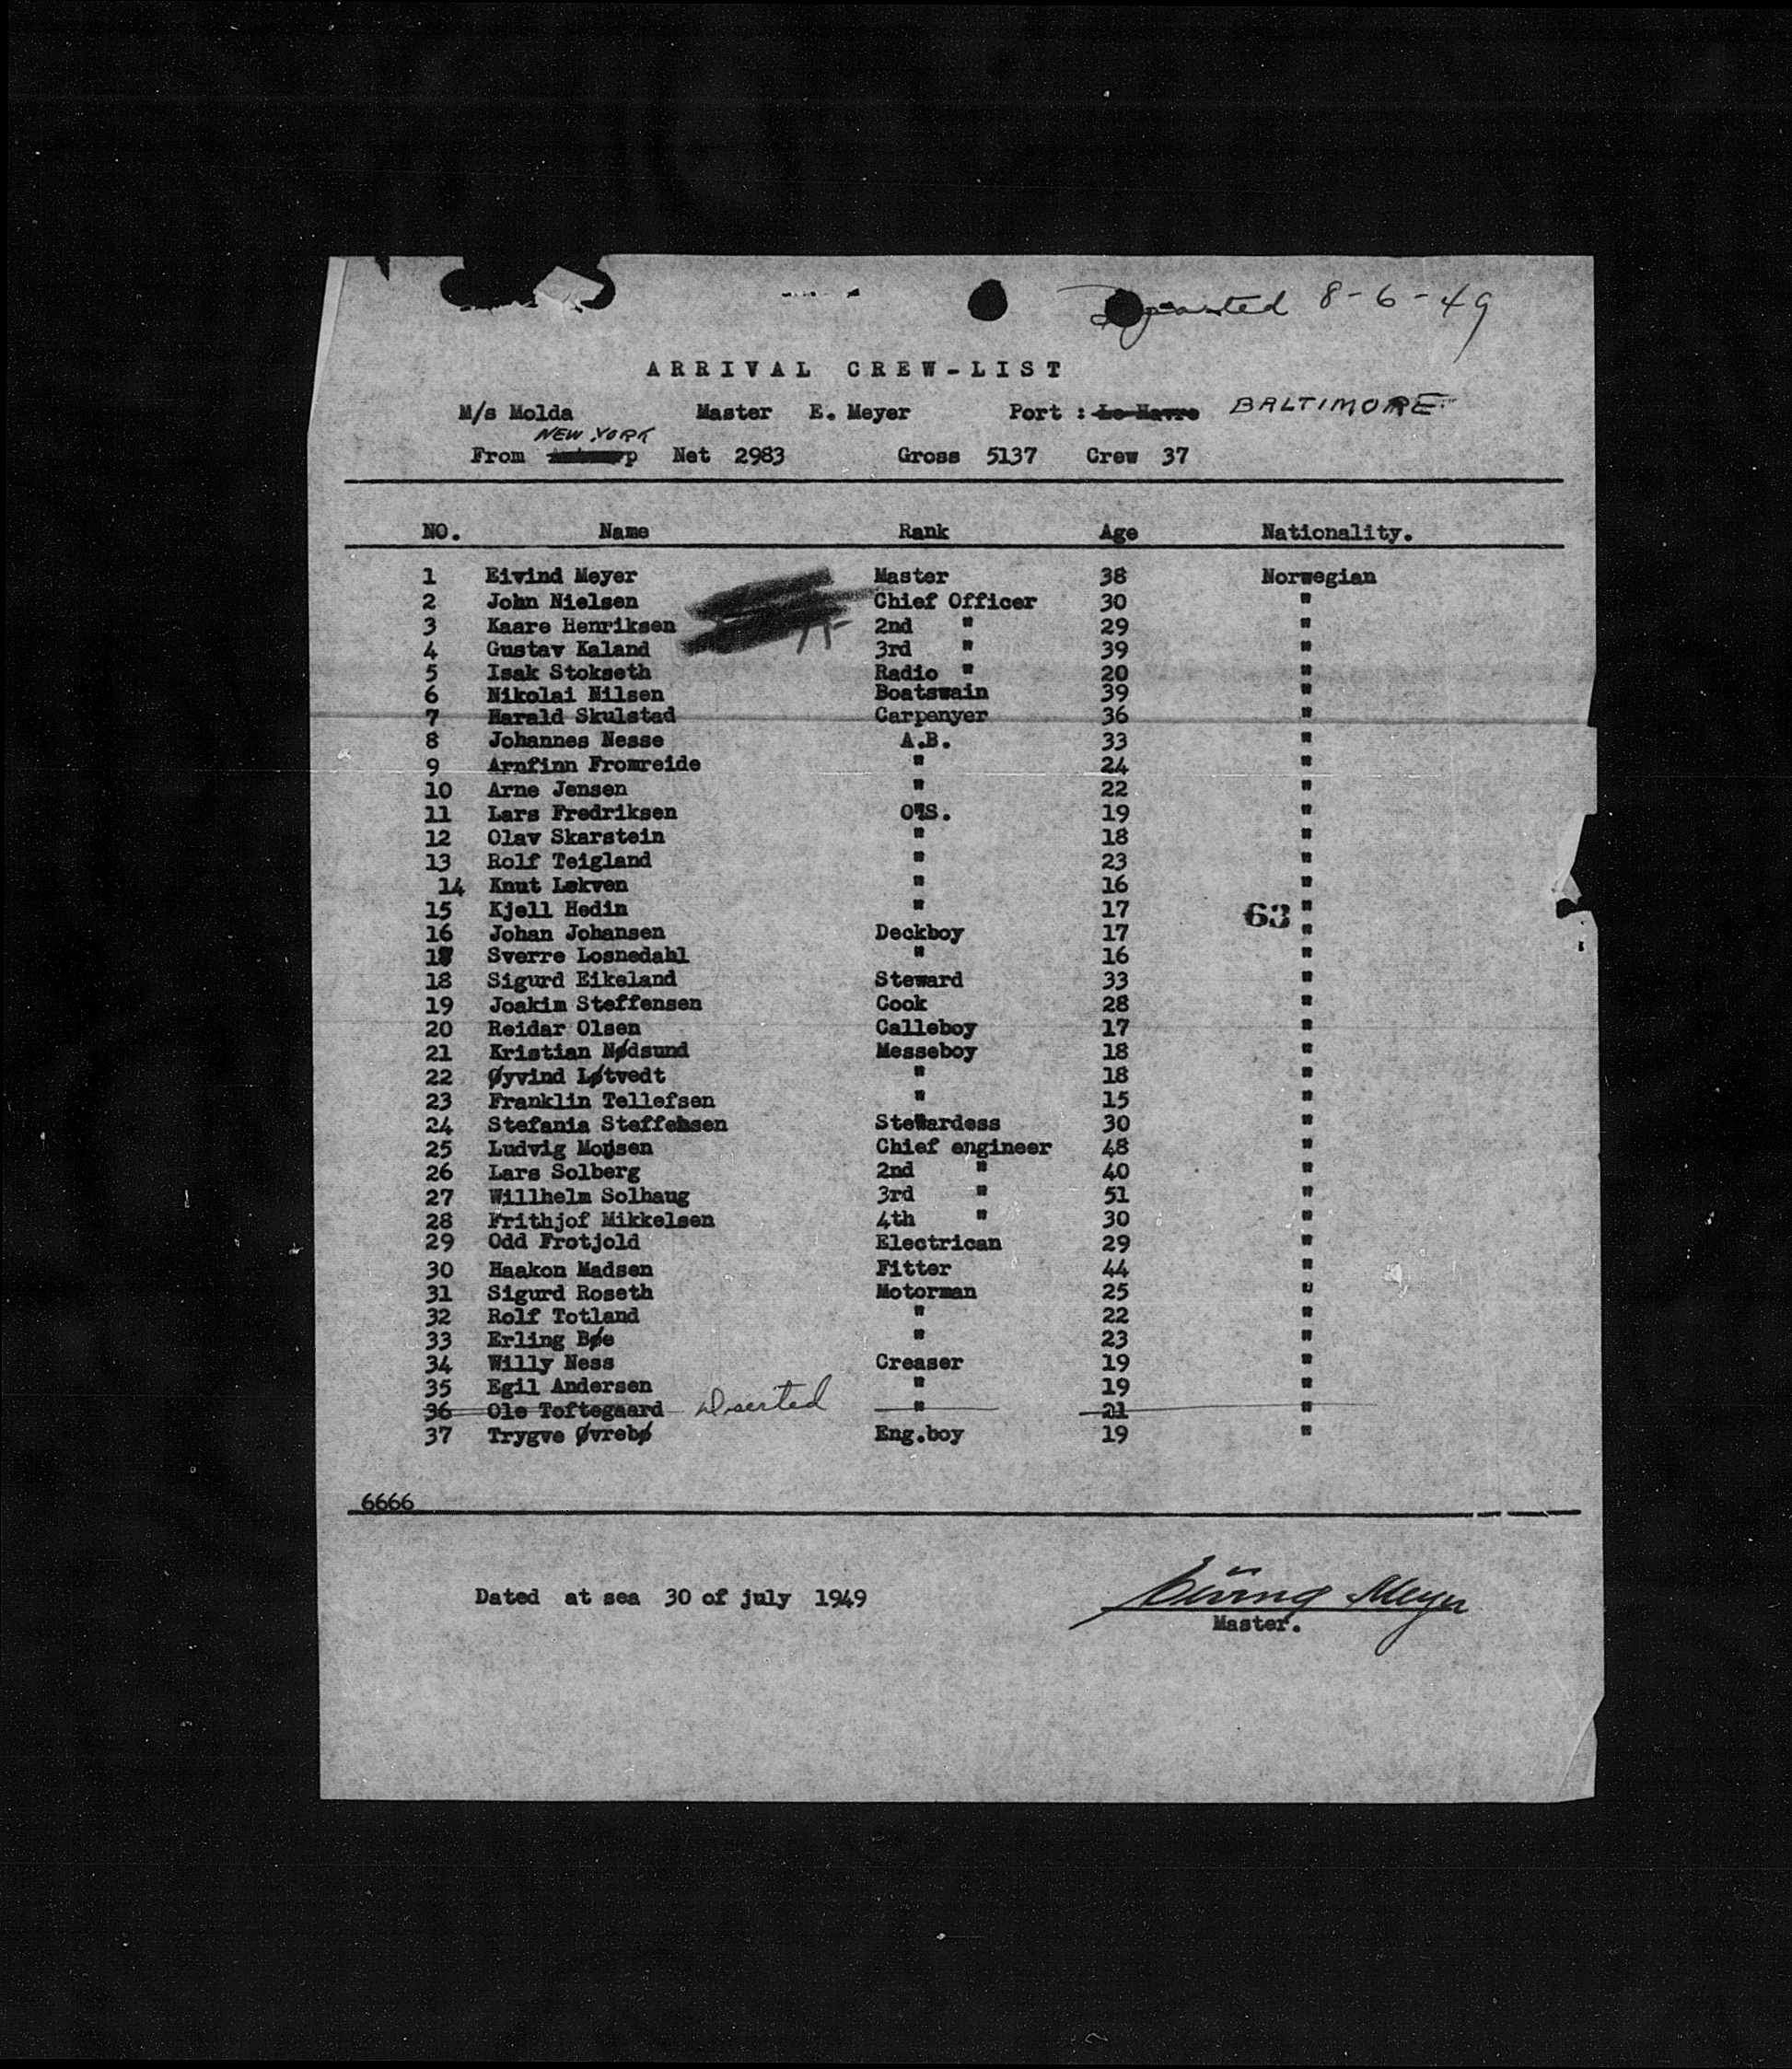 Departed 8-6-49
ARRIVAL CREW-LIST
M/s Molda Master E. Meyer Port : Le Havre BALTIMORE
NEW YORK
From Net 2983 Gross 5137 Crew 37
NO. Name Rank Age Nationality.
1 Eivind Meyer Master 38 Norwegian
2 John Nielsen Chief Officer 30 "
3 Kaare Henriksen 2nd " 29 "
4 Gustav Kaland 3rd " 39 "
5 Isak Stokseth Radio " 20 "
6 Nikolai Nilsen Boatswain 39 "
7 Harald Skulstad Carpenyer 36 "
8 Johannes Nesse A.B. 33 "
9 Arnfinn Fromreide " 24 "
10 Arne Jensen " 22 "
11 Lars Fredriksen O.S. 19 "
12 Olav Skarstein " 18 "
13 Rolf Teigland " 23 "
14 Knut Løkven " 16 "
15 Kjell Hedin " 17 63 "
16 Johan Johansen Deckboy 17 "
17 Sverre Losnedahl " 16 "
18 Sigurd Eikeland Steward 33 "
19 Joakim Steffensen Cook 28 "
20 Reidar Olsen Calleboy 17 "
21 Kristian Nødsund Messeboy 18 "
22 Øyvind Løtvedt " 18 "
23 Franklin Tellefsen " 15 "
24 Stefania Steffensen Stewardess 30 "
25 Ludvig Monsen Chief engineer 48 "
26 Lars Solberg 2nd " 40 "
27 Willhelm Solhaug 3rd " 51 "
28 Frithjof Mikkelsen 4th " 30 "
29 Odd Frotjold Electrican 29 "
30 Haakon Madsen Fitter 44 "
31 Sigurd Roseth Motorman 25 "
32 Rolf Totland " 22 "
33 Erling Bøe " 23 "
34 Willy Ness Creaser 19 "
35 Egil Andersen " 19 "
36 Ole Toftegaard Deserted " 21 "
37 Trygve Øvrebø Eng.boy 19 "
6666
Dated at sea 30 of july 1949 Eivind Meyer
Master.